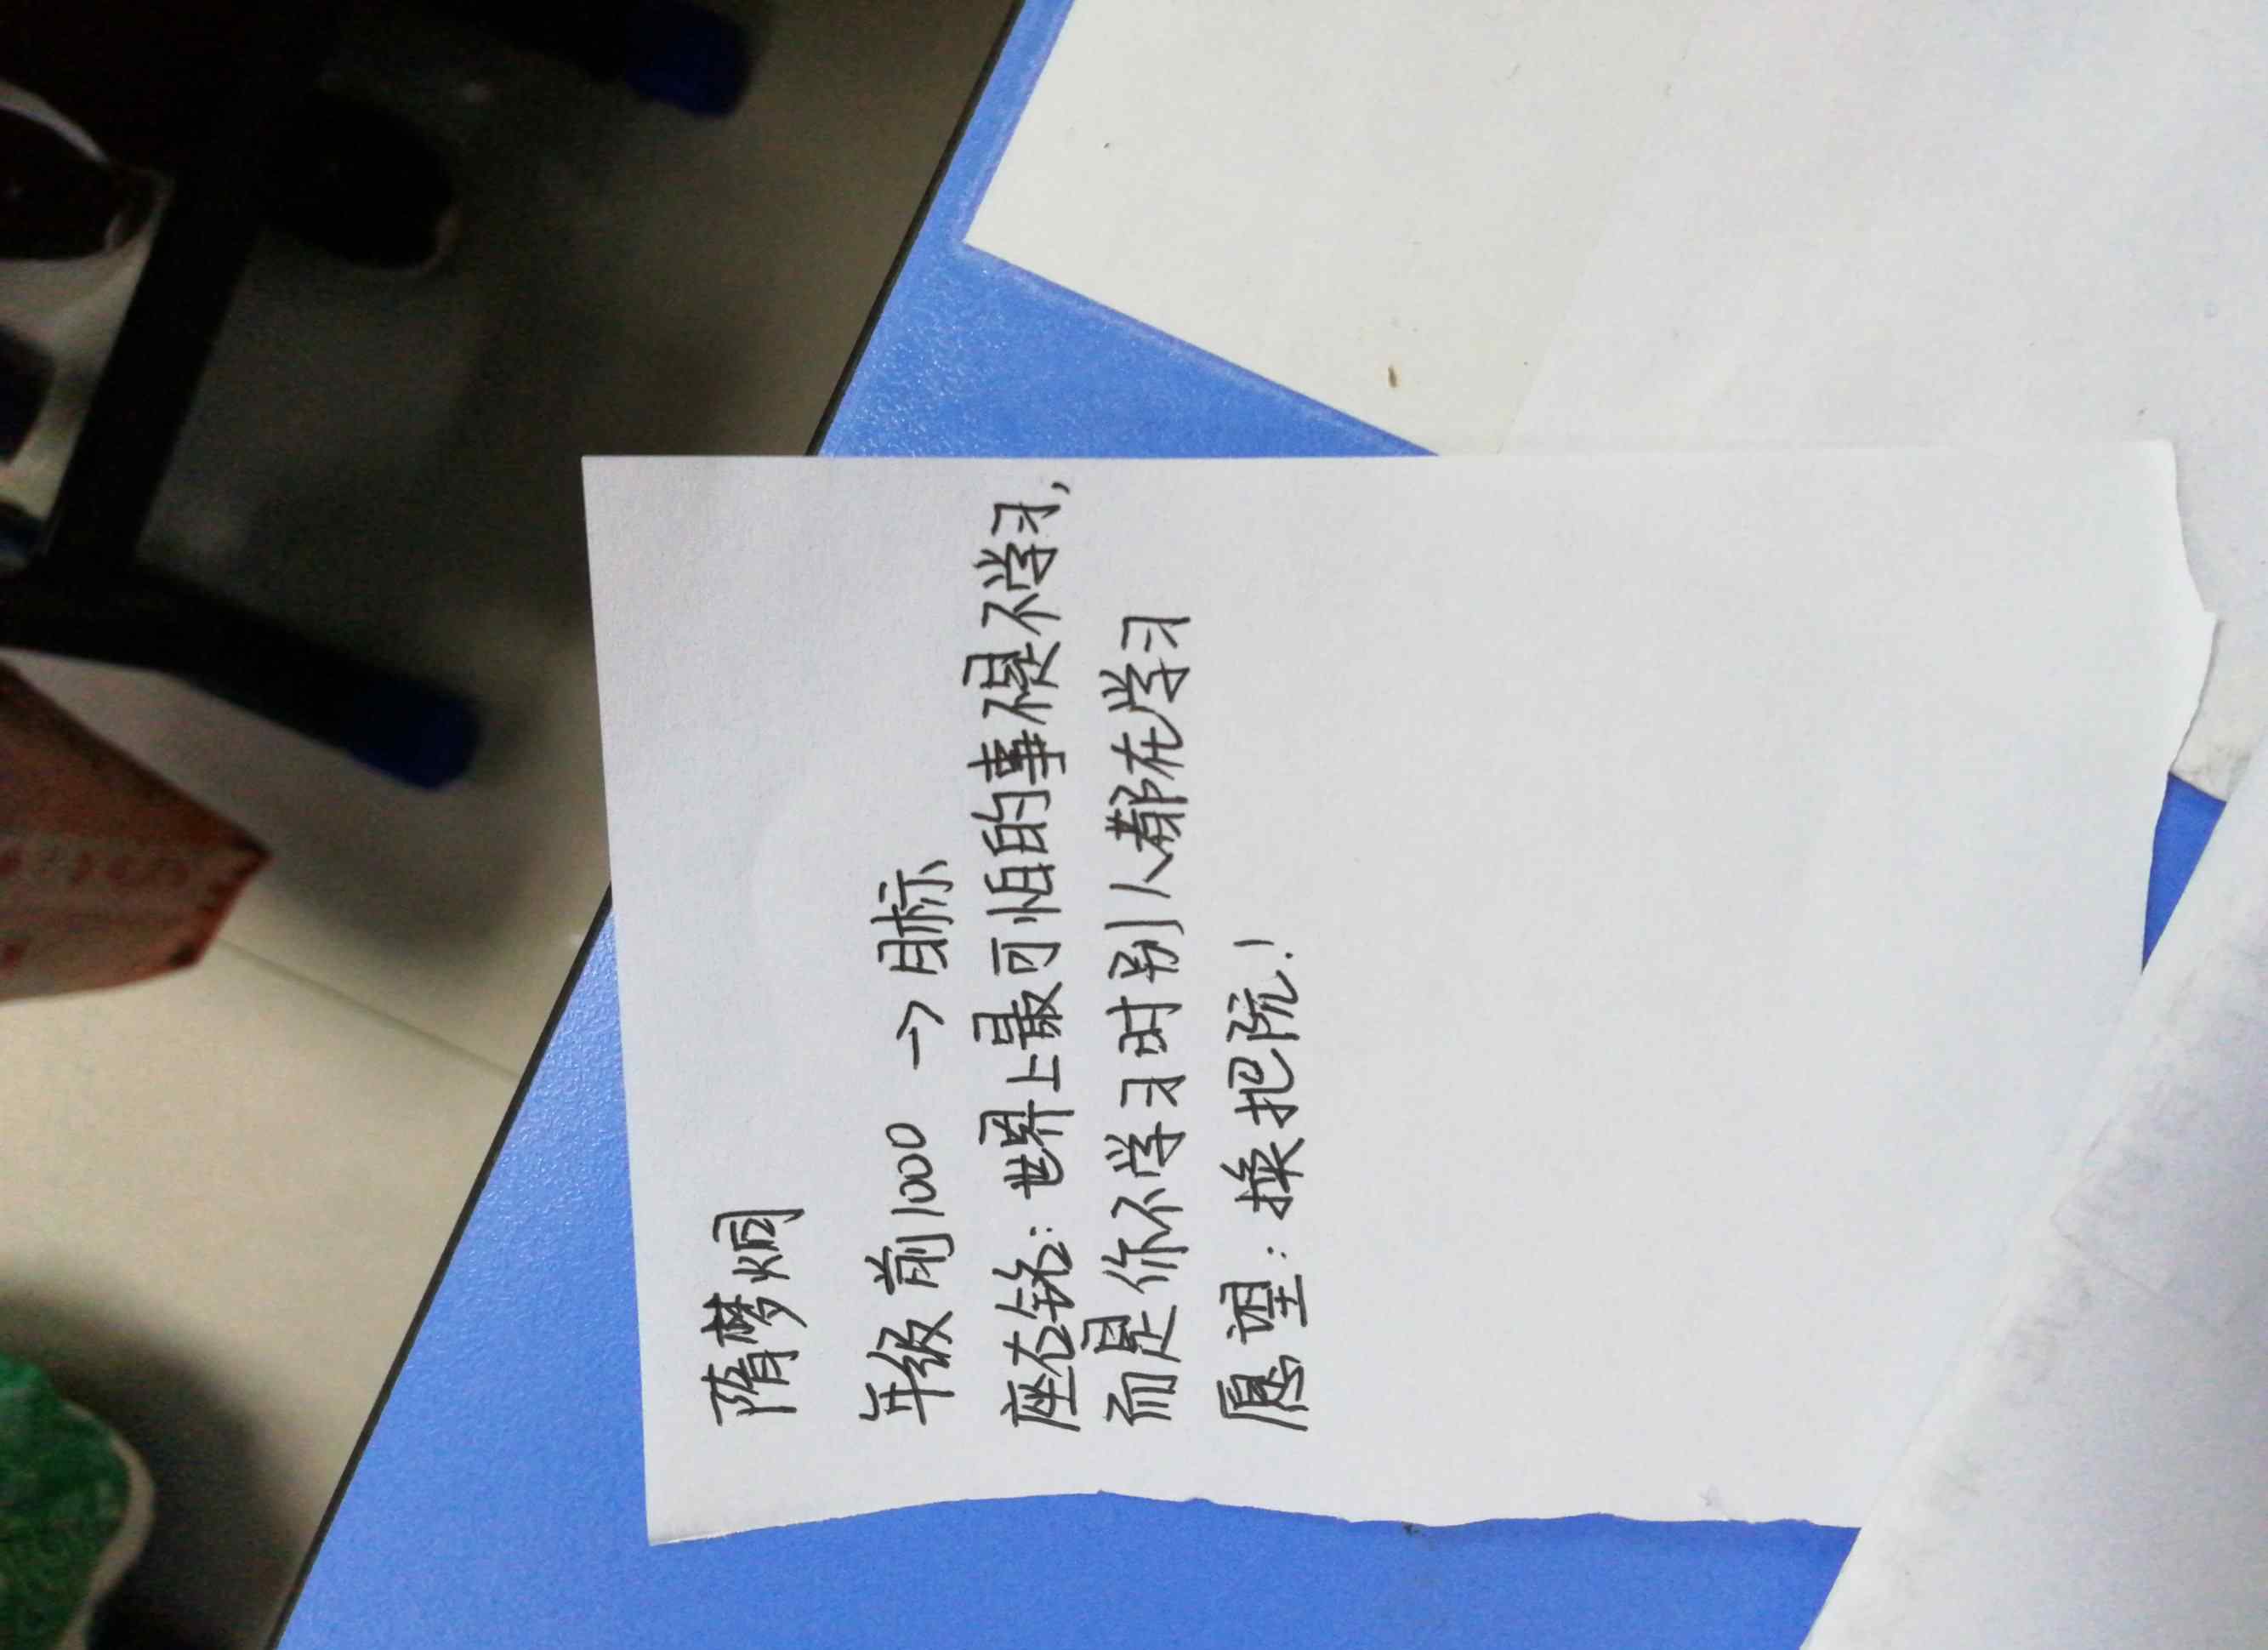 隋梦烔
年级前1000 → 目标
座右铭：世界上最可怕的事不是不学习，
而是你不学习时别人都在学习
愿望：换把阮！